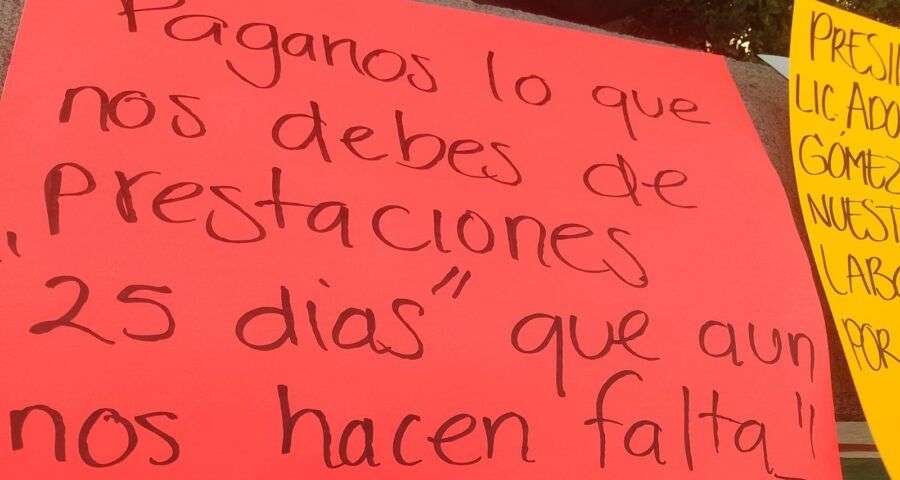 Paganos lo que
nos debes de
"Prestaciones
25 dias" que aun
nos hacen falta"
PRESI
LIC. ADO
GÓMEZ
NUEST
LABO
POR